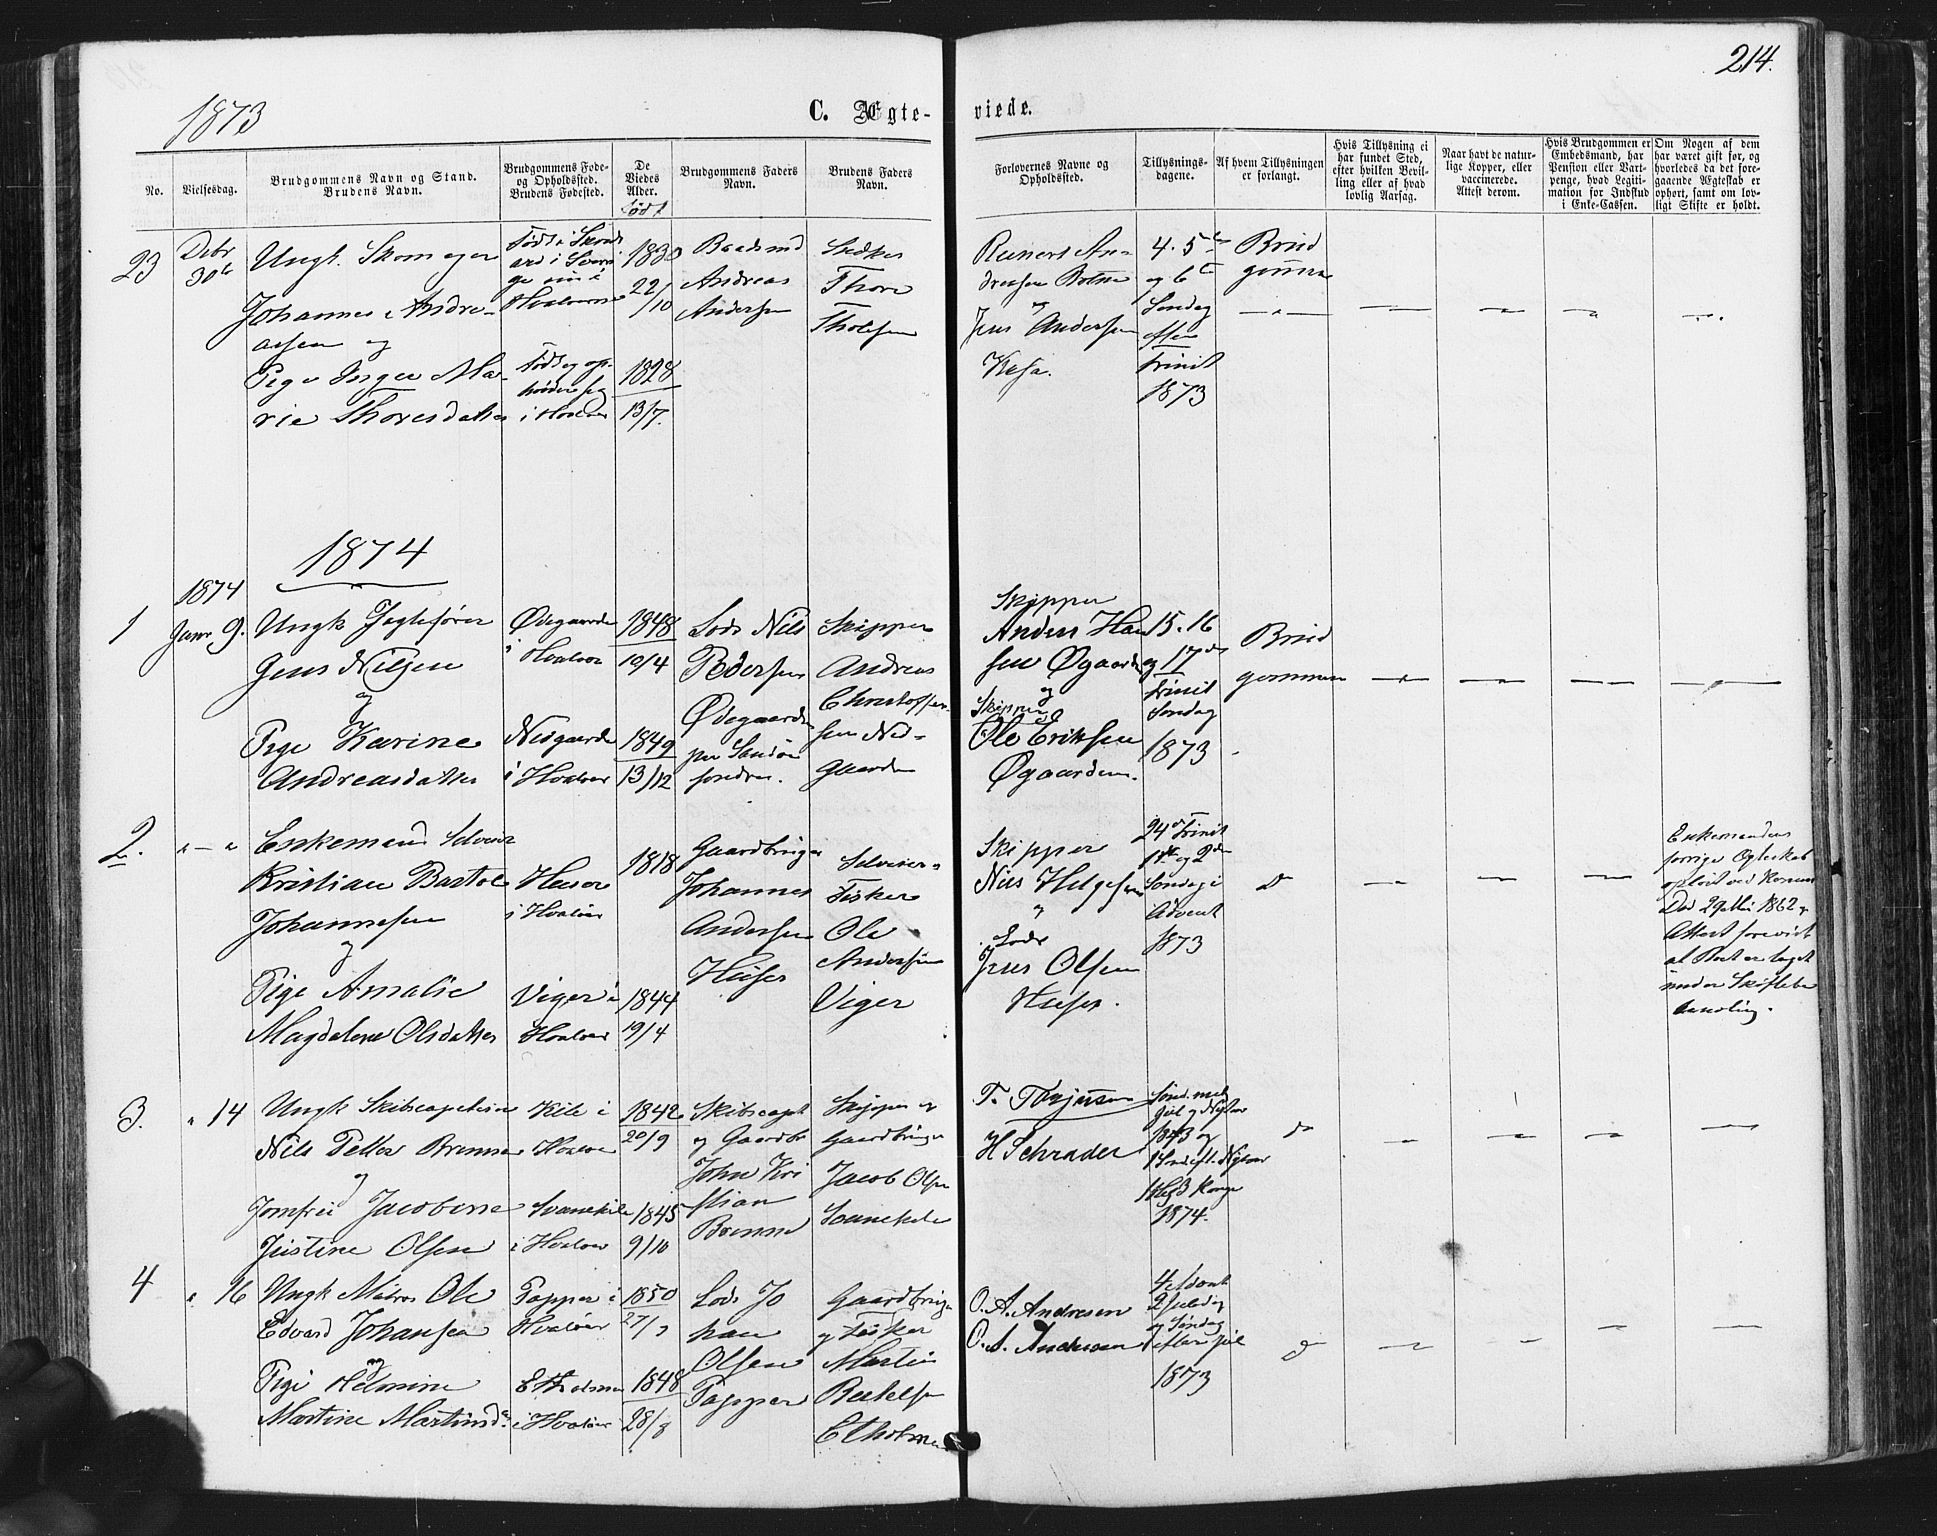 214.
1873
C. Ægte-
viede.
No.
Vielsesdag.
Brudgommens Navn og Stand.
Brudens Navn.
Brudgommens Føde-
og Opholdsted.
Brudens Fødested.
De
Viedes
Alder.
født
Brudgommens Faders
Navn.
Brudens Faders
Navn.
Forlovernes Navne og
Opholdsted.
Tillysnings-
dagene.
Af hvem Tillysningen
er forlangt.
Hvis Tillysning ei
har fundet Sted,
efter hvilken Bevil-
ling eller af hvad
lovlig Aarsag.
Naar havt de natur-
lige Kopper, eller
vaccinerede.
Attest derom.
Hvis Brudgommen er
Embedsmand, har
Pension eller Vart-
penge, hvad Legiti-
mation for Indskud
i Enke-Cassen.
Om Nogen af dem
har været gift før, og
hvorledes da det fore-
gaaende Ægteskab er
ophørt, samt om lov-
ligt Skifte er holdt.
23
Debr
30te
Ungk. Skomager
Johannes Andre-
assen og
Pige Inger Ma-
rie Thoresdatter
Født i
i
Hvaløerne
Født og op-
i Hvaløer
1830
22/10
1828
13/7.
Baadsmd
Andreas
Andersen
Thore
Reinert An-
dresen
og
Jens Andersen
4. 5te
og 6te
Søndag
efter
trinit
1873
Brud
gommen
1874
1874
1
Janr 9.
Ungk Jagtefører
Jens Nilsen
og
Pige Karine
Andreasdatter
Ødegaarden
i Hvaløer
Nedgaarden
i Hvaløer
1848
19/4
1849
13/12
Lods Nils
Pedersen
Ødegaarden
Skipper
Andreas
Christoffer-
sen Ned-
gaarden
Skipper
Anders Han
sen Øgaarden
og
Skipper
Ole Eriksen
Øgaarden.
15. 16
og 17de
trinit
Søndag
1873
Brud
gommen
2.
Enkemand Selveier
Kristian Bastol
Johannesen
og
Pige Amalie
Magdalene Olsdatter
i Hvaløer
Viger i
Hvaløer
1818
1844
19/4
Gaardbruger
Johannes
Andersen
Selveier-
Fisker
Ole
Andersen
Viger
Skipper
Nils Helgesen
og
Lods
Jens Olsen
24de Trinit
1te og 2den
Søndag i
Advent
1873
do
Enkemandens
forrige Egteskab
opløst ved Konens
Død 1862
Attest forevist
at Boet er taget
under Skiftebe
handling.
3.
" 14
Ungk Skibscaptein
Nils Petter Brenne
og
Jomfru Jacobine
Justine Olsen
Kile i
Hvaløer
Svanekile
i Hvaløer
1842
20/9
1845
9/10
Skibscapt
og Gaardbr
John Kri
stian
Brenne
Skipper og
Gaardbruger
Jacob Olsen
Svanekile
T. Torjusen
H Schrader
Sønd. mel
Jul og Nytaar
1873 og
1 Sønd eft. Nytaar
1874.
do
4
" 16
Ungk Matros Ole
Edvard Johansen
og
Pige Helmine
Martine Martinsd.
Papper i
Hvaløer
i Hvaløer
1850
1848
28/8
Lods Jo
han
Olsen
Papper
Gaardbruger
og Fisker
Martin
O. A. Andresen
O. A. Andresen
4 Advent
2 Juledag
og Søndag
efter Jul
1873
do